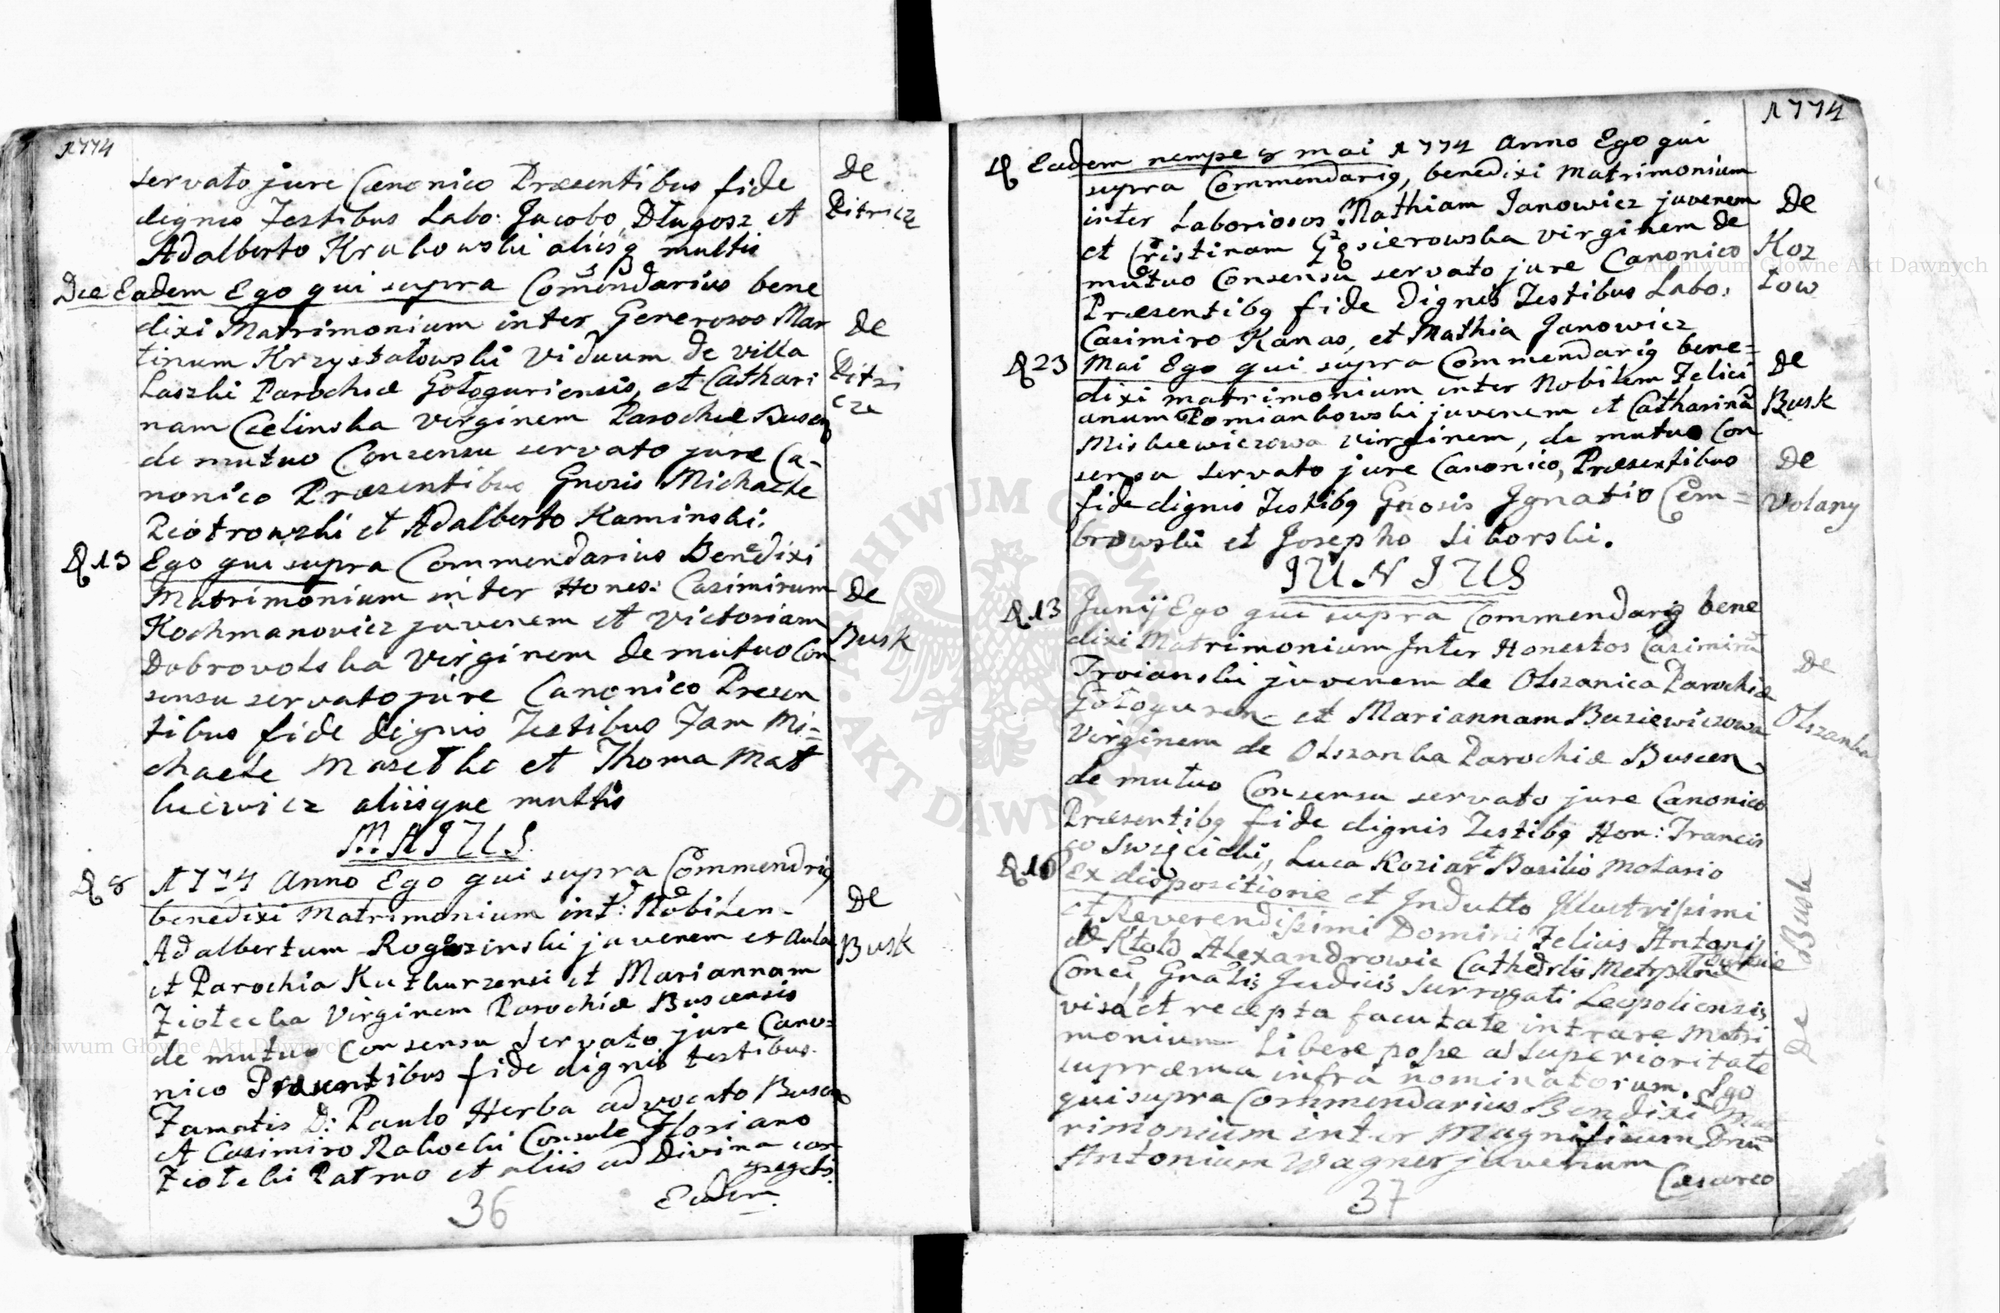 1774
servato jure Canonico Præsentibus fide
dignis Testibus Labo: Jacobo Długosz et
Adalberto Krukowski aliisq multis
De
Die Eadem Ego qui supra Comendarius bene
dixi Matrimonium inter Generosos Mar
tinum Krzysztalowski Viduum de villa
Laszki Parochiæ Gołoguriensis, et Cathari
nam Cielinska Virginem Parochiæ Buscen
de mutuo Consensu servato jure Ca-
nonico Præsentibus Gnosis Michaele
Piotrowski et Adalberto Kaminski.
De
D 13 Ego qui supra Commendarius Benedixi
Matrimonium inter Hones: Casimirum
Kochmanovicz juvenem et Victoriam
Dobrovolska Virginem de mutuo Con
sensu servato jure Canonico Presen
tibus fide dignis Testibus Fam Mi=
chaele et Thoma Mat
kiewicz aliisque multis
De
Busk
MAIUS
D 8 1774 Anno Ego qui supra Commendriq
benedixi Matrimonium int: Nobilem
Adalbertum Rogozinski juvenem ex Aula
et Parochia Kutkurzensi et Mariannam
Ziotecka Virginem Parochiæ Buscensis
de mutuo Consensu Servato jure Cano=
nico Præsentibus fide dignis testibus
Famatis D: Paulo Herba advocato Buscen
et Casimiro Rakocki Consule Floriano
Ziotecki Patruo et aliis ad Divina con
gregatis.
Eadem
De
Busk
36
1774
D Eadem nempe 8 mai 1774 Anno Ego qui
supra Commendariq, benedixi Matrimonium
inter Laboriosos Mathiam Janowicz juvenem
et Cristinam virginem de
mutuo Consensu servato jure Canonico
Præsentibq fide dignis Testibus Labo:
Casimiro Kanas, et Mathia Janowicz
De
Koz
low
D 23 Mai Ego qui supra Commendariq bene=
dixi matrimonium inter Nobilem Felici
anum Pomiankowski juvenem et Catharinā
Miskiewiczowa virginem, de mutuo Con
sensu servato jure Canonico, Præsentibus
fide dignis Testibq Gnosis Ignatio Cem=
browski et Josepho Siborski.
De
Busk
De
Volany
IUNIUS
D 13 Junij Ego qui supra Commendariq bene
dixi Matrimonium Inter Honestos Casimirū
Troianski juvenem de Olszanica Parochiæ
Gołoguren et Mariannam Busiewiczowa
Virginem de Olszanka Parochiæ Buscen
de mutuo Consensu servato jure Canonico
Præsentibq fide dignis Testibq Hon: Francis
co Swięcicki, Luca Koziar et Basilio Molario
De
Olszanka
D 16 Ex dispositione et Indulto Illustrissimi
et Reverendissimi Domini Felicis Antonij
de Ktolo Alexandrowic Cathedrlis Metrplnæ
Conci, Gnalis Judicis Surrogati Leopoliensis
visa et recepta facultate intrare Matri
monium libere posse a Superioritate
supræma infra nominatorum Ego
qui supra Commendarius Bendixi Mat
rimonium inter Magnificum Dnū
Antonium Wagner juvenem
Cæsareo
De Busk
37
Archiwum Główne Akt Dawnych
Archiwum Główne Akt Dawnych
ARCHIWUM GŁÓWNE AKT DAWNYCH